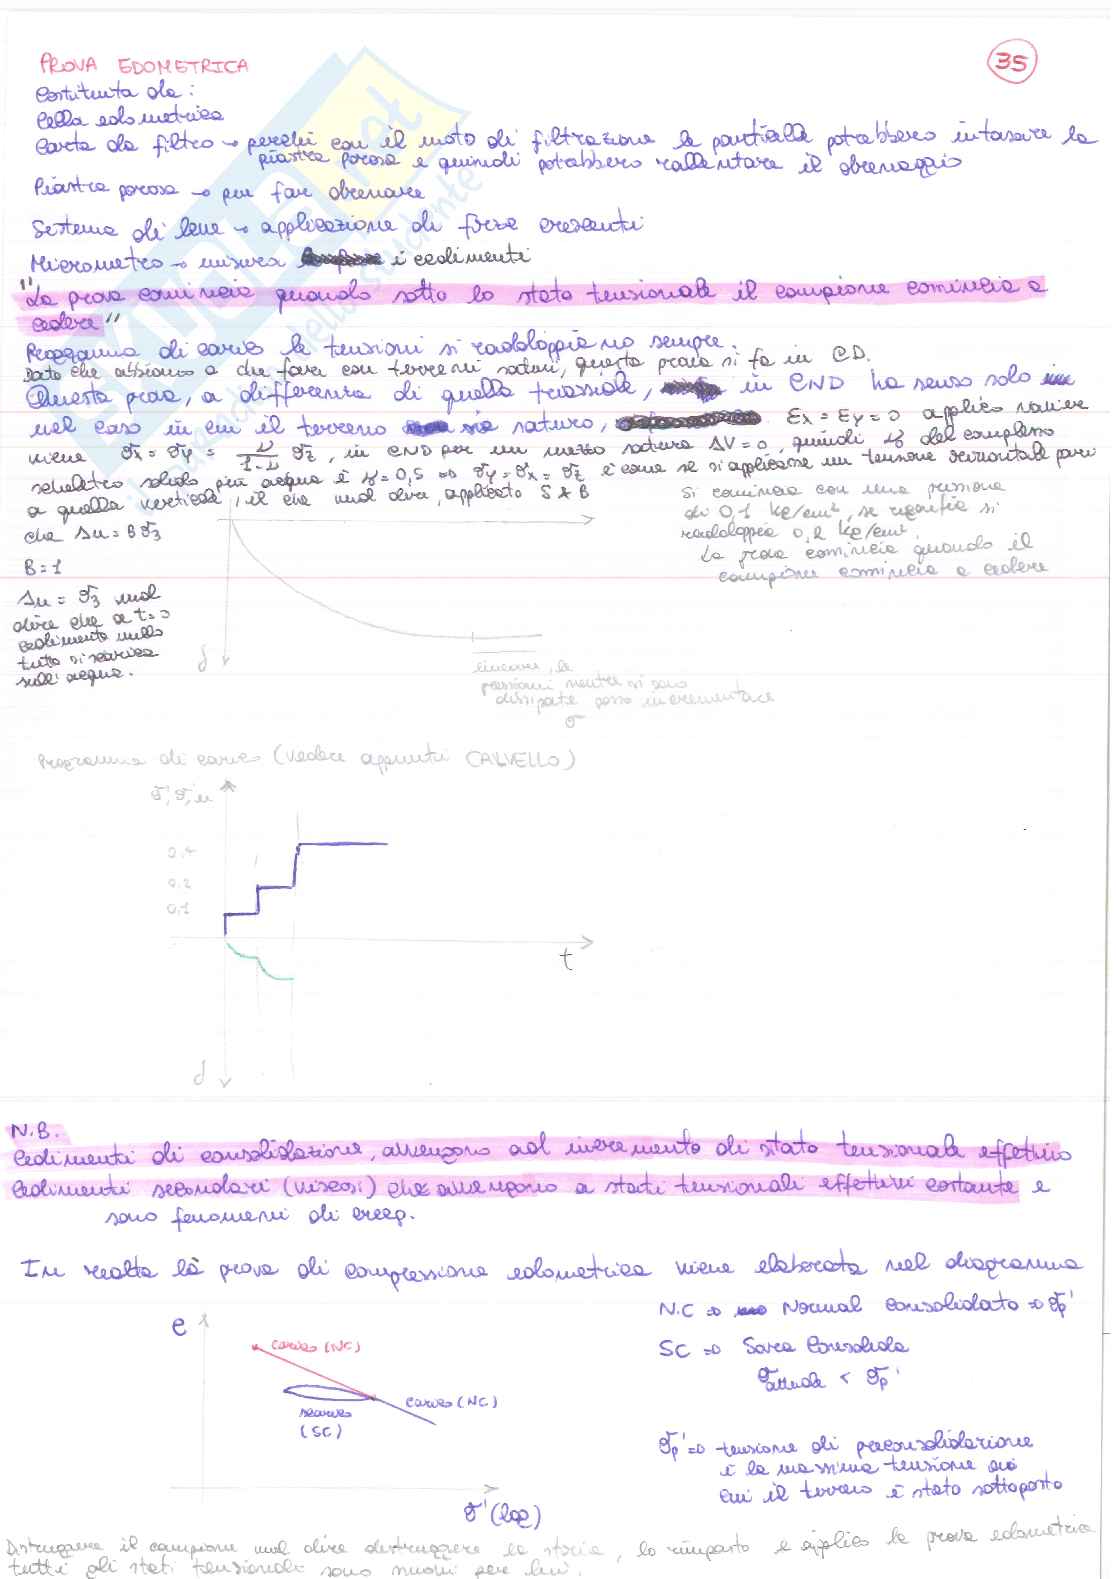 PROVA EDOMETRICA
35
Costituita da:
Cella edometrica
Carta da filtro → perché con il moto di filtrazione le particelle potrebbero intasare la
piastra porosa e quindi potrebbero rallentare il drenaggio
Piastra porosa → per far drenare
Sistema di leve → applicazione di forze crescenti
Micrometro → misura i cedimenti
"La prova comincia quando sotto lo stato tensionale il campione comincia a
cedere"
Programma di carico le tensioni si raddoppiano sempre.
Dato che abbiamo a che fare con terreni saturi, questa prova si fa in CD.
Questa prova, a differenza di quella triassiale, in CND ha senso solo
nel caso in cui il terreno sia saturo, εx = εy = 0 applico
viene σx = σy = ν/1-ν σz, in CND per un mezzo saturo ΔV=0, quindi ν del complesso
scheletro solido più acqua è ν=0,5 ⇒ σy=σx=σz è come se si applicasse un tensione orizzontale pari
a quella verticale, il che vuol dire, applicato S & B
che Δu = B σ3
B=1
Δu = σ3 vuol
dire che a t=0
cedimento nullo
tutto si scarica
sull'acqua.
Si comincia con una pressione
di 0,1 kg/cm², se rigonfia si
raddoppia 0,2 kg/cm².
La prova comincia quando il
campione comincia a cedere
δ
lineare, le
pressioni neutre si sono
dissipate posso incrementare
σ
Programma di carico (vedere appunti CALVELLO)
σ', σ, u
0,4
0,2
0,1
t
δ
N.B.
Cedimenti di consolidazione, avvengono ad incremento di stato tensionale effettivo
Cedimenti secondari (viscosi) che avvengono a stati tensionali effettivi costante e
sono fenomeni di creep.
In realtà la prova di compressione edometrica viene elaborata nel diagramma
e
carico (NC)
carico (NC)
scarico
(SC)
σ' (log)
N.C ⇒ Normal consolidato ⇒ σp'
SC ⇒ Sovra Consolida
σattuale < σp'
σp' ⇒ tensione di preconsolidazione
è la massima tensione a
cui il terreno è stato sottoposto
Distruggere il campione vuol dire distruggere la storia, lo rimpasto e applico la prova edometrica
tutti gli stati tensionali sono nuovi per lui.